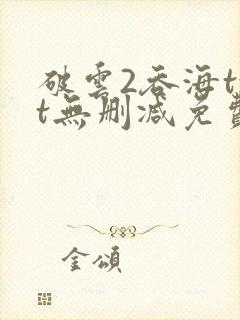 破雲2吞海t
t無刪減免費
金頌